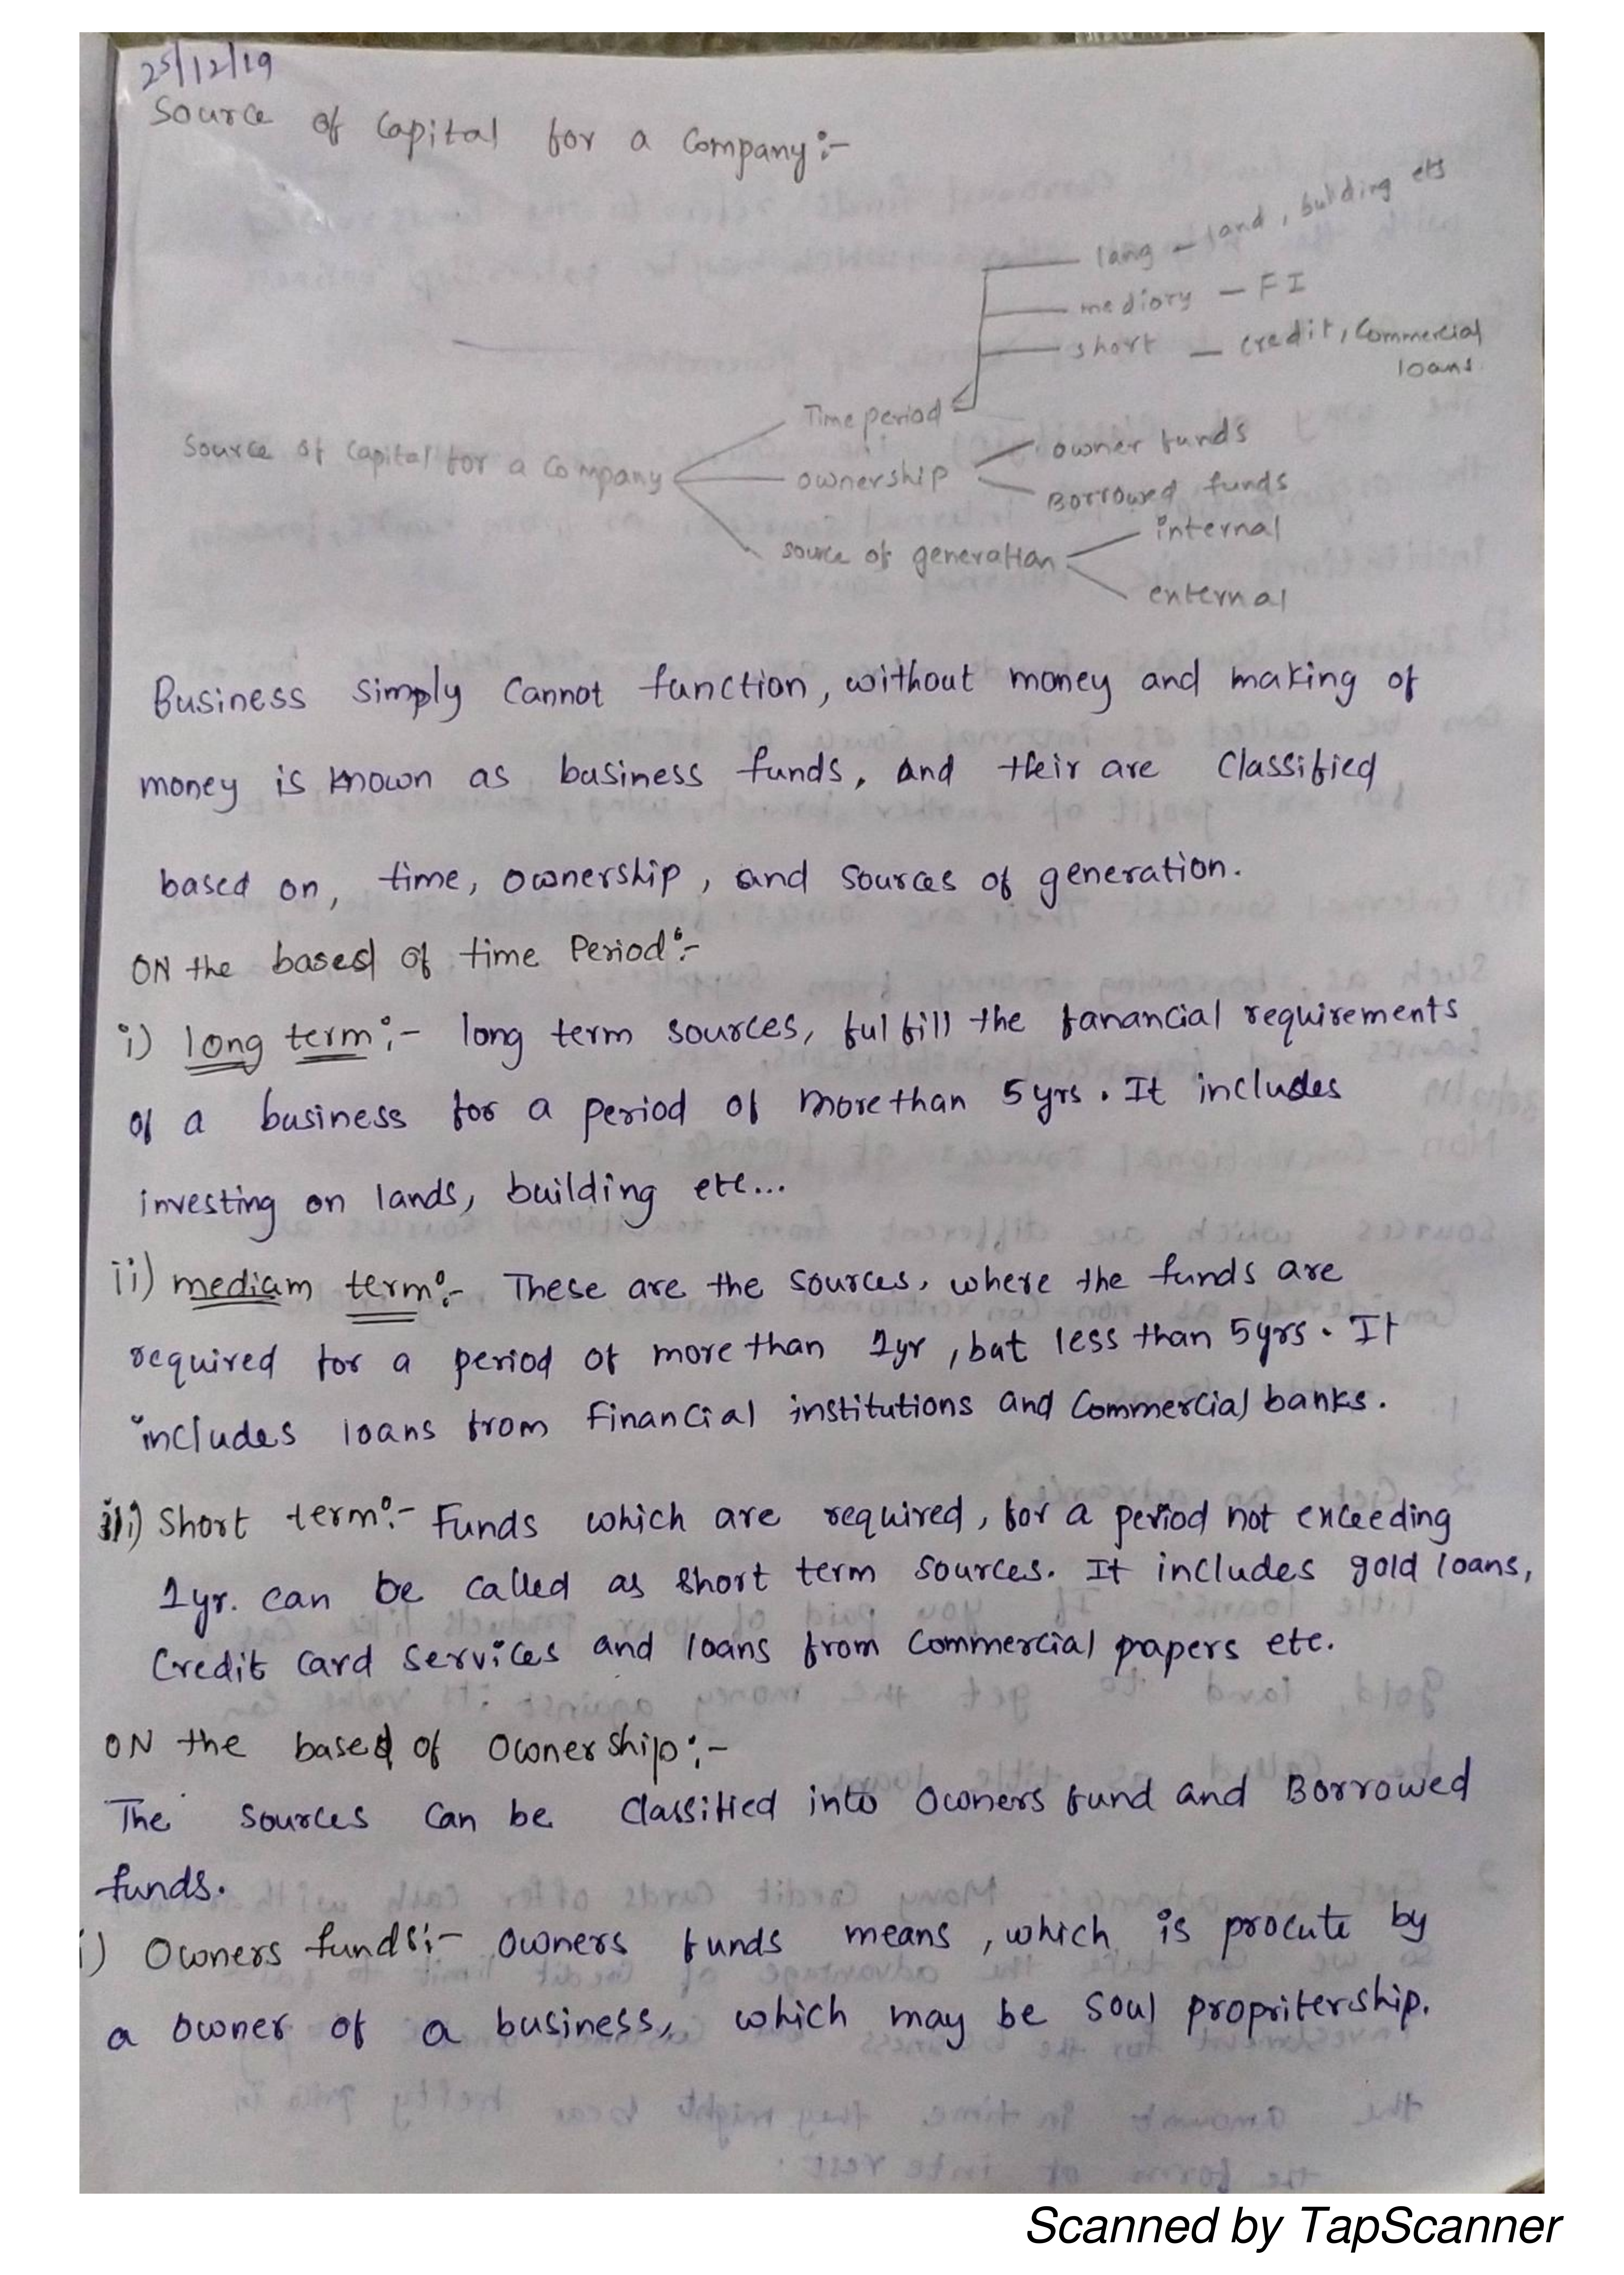 25/12/19
Source of Capital for a Company:-
lang - land, building ets
mediory - FI
short - credit, Commercial
loans
Time period
Source of Capital for a Company
ownership
owner funds
Borrowed funds
source of generation
internal
enternal
Business simply cannot function, without money and making of
money is known as business funds, and their are classified
based on, time, ownership, and sources of generation.
ON the based of time Period:-
i) long term:- long term sources, fulfill the fanancial requirements
of a business for a period of more than 5yrs. It includes
investing on lands, building etc...
ii) mediam term:- These are the sources, where the funds are
required for a period of more than 1yr, but less than 5yrs. It
includes loans from Financial institutions and Commercial banks.
iii) Short term:- Funds which are required, for a period not exceeding
1yr. can be called as short term sources. It includes gold loans,
Credit Card Services and loans from Commercial papers etc.
ON the based of Ownership:-
The sources can be classified into Owners fund and Borrowed
funds.
i) Owners funds:- Owners funds means, which is procute by
a owner of a business, which may be soul propritership.
Scanned by TapScanner